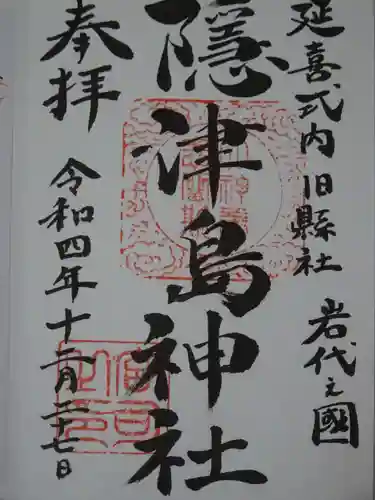 延喜式内旧縣社
岩代之國
隱津島神社
奉拝
令和四年十二月二十七日